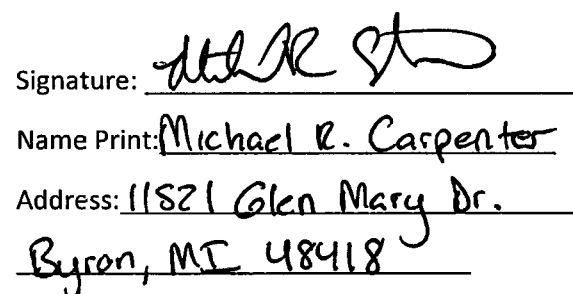 Signature:
Name Print: Michael R. Carpenter
Address: 11821 Glen Mary Dr.
Byron, MI 48418